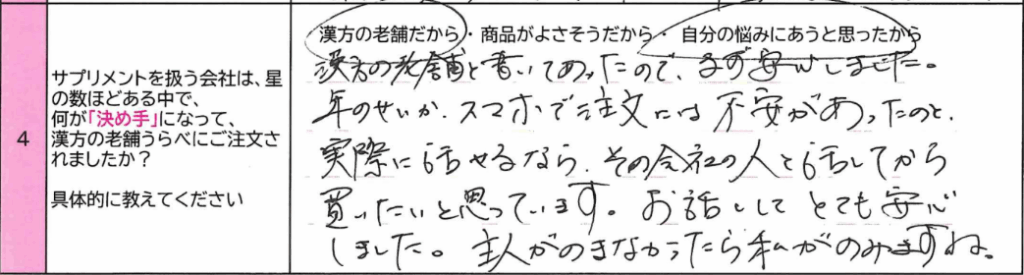 4
サプリメントを扱う会社は、星
の数ほどある中で、
何が「決め手」になって、
漢方の老舗うらべにご注文さ
れましたか？
具体的に教えてください
漢方の老舗だから・商品がよさそうだから・自分の悩みにあうと思ったから
漢方の老舗と書いてあったので、まず安心しました。
年のせいか、スマホで注文には不安があったのと、
実際に話せるなら、その会社の人と話してから
買いたいと思っています。お話しして とても安心
しました。主人がのまなかったら私がのみますね。